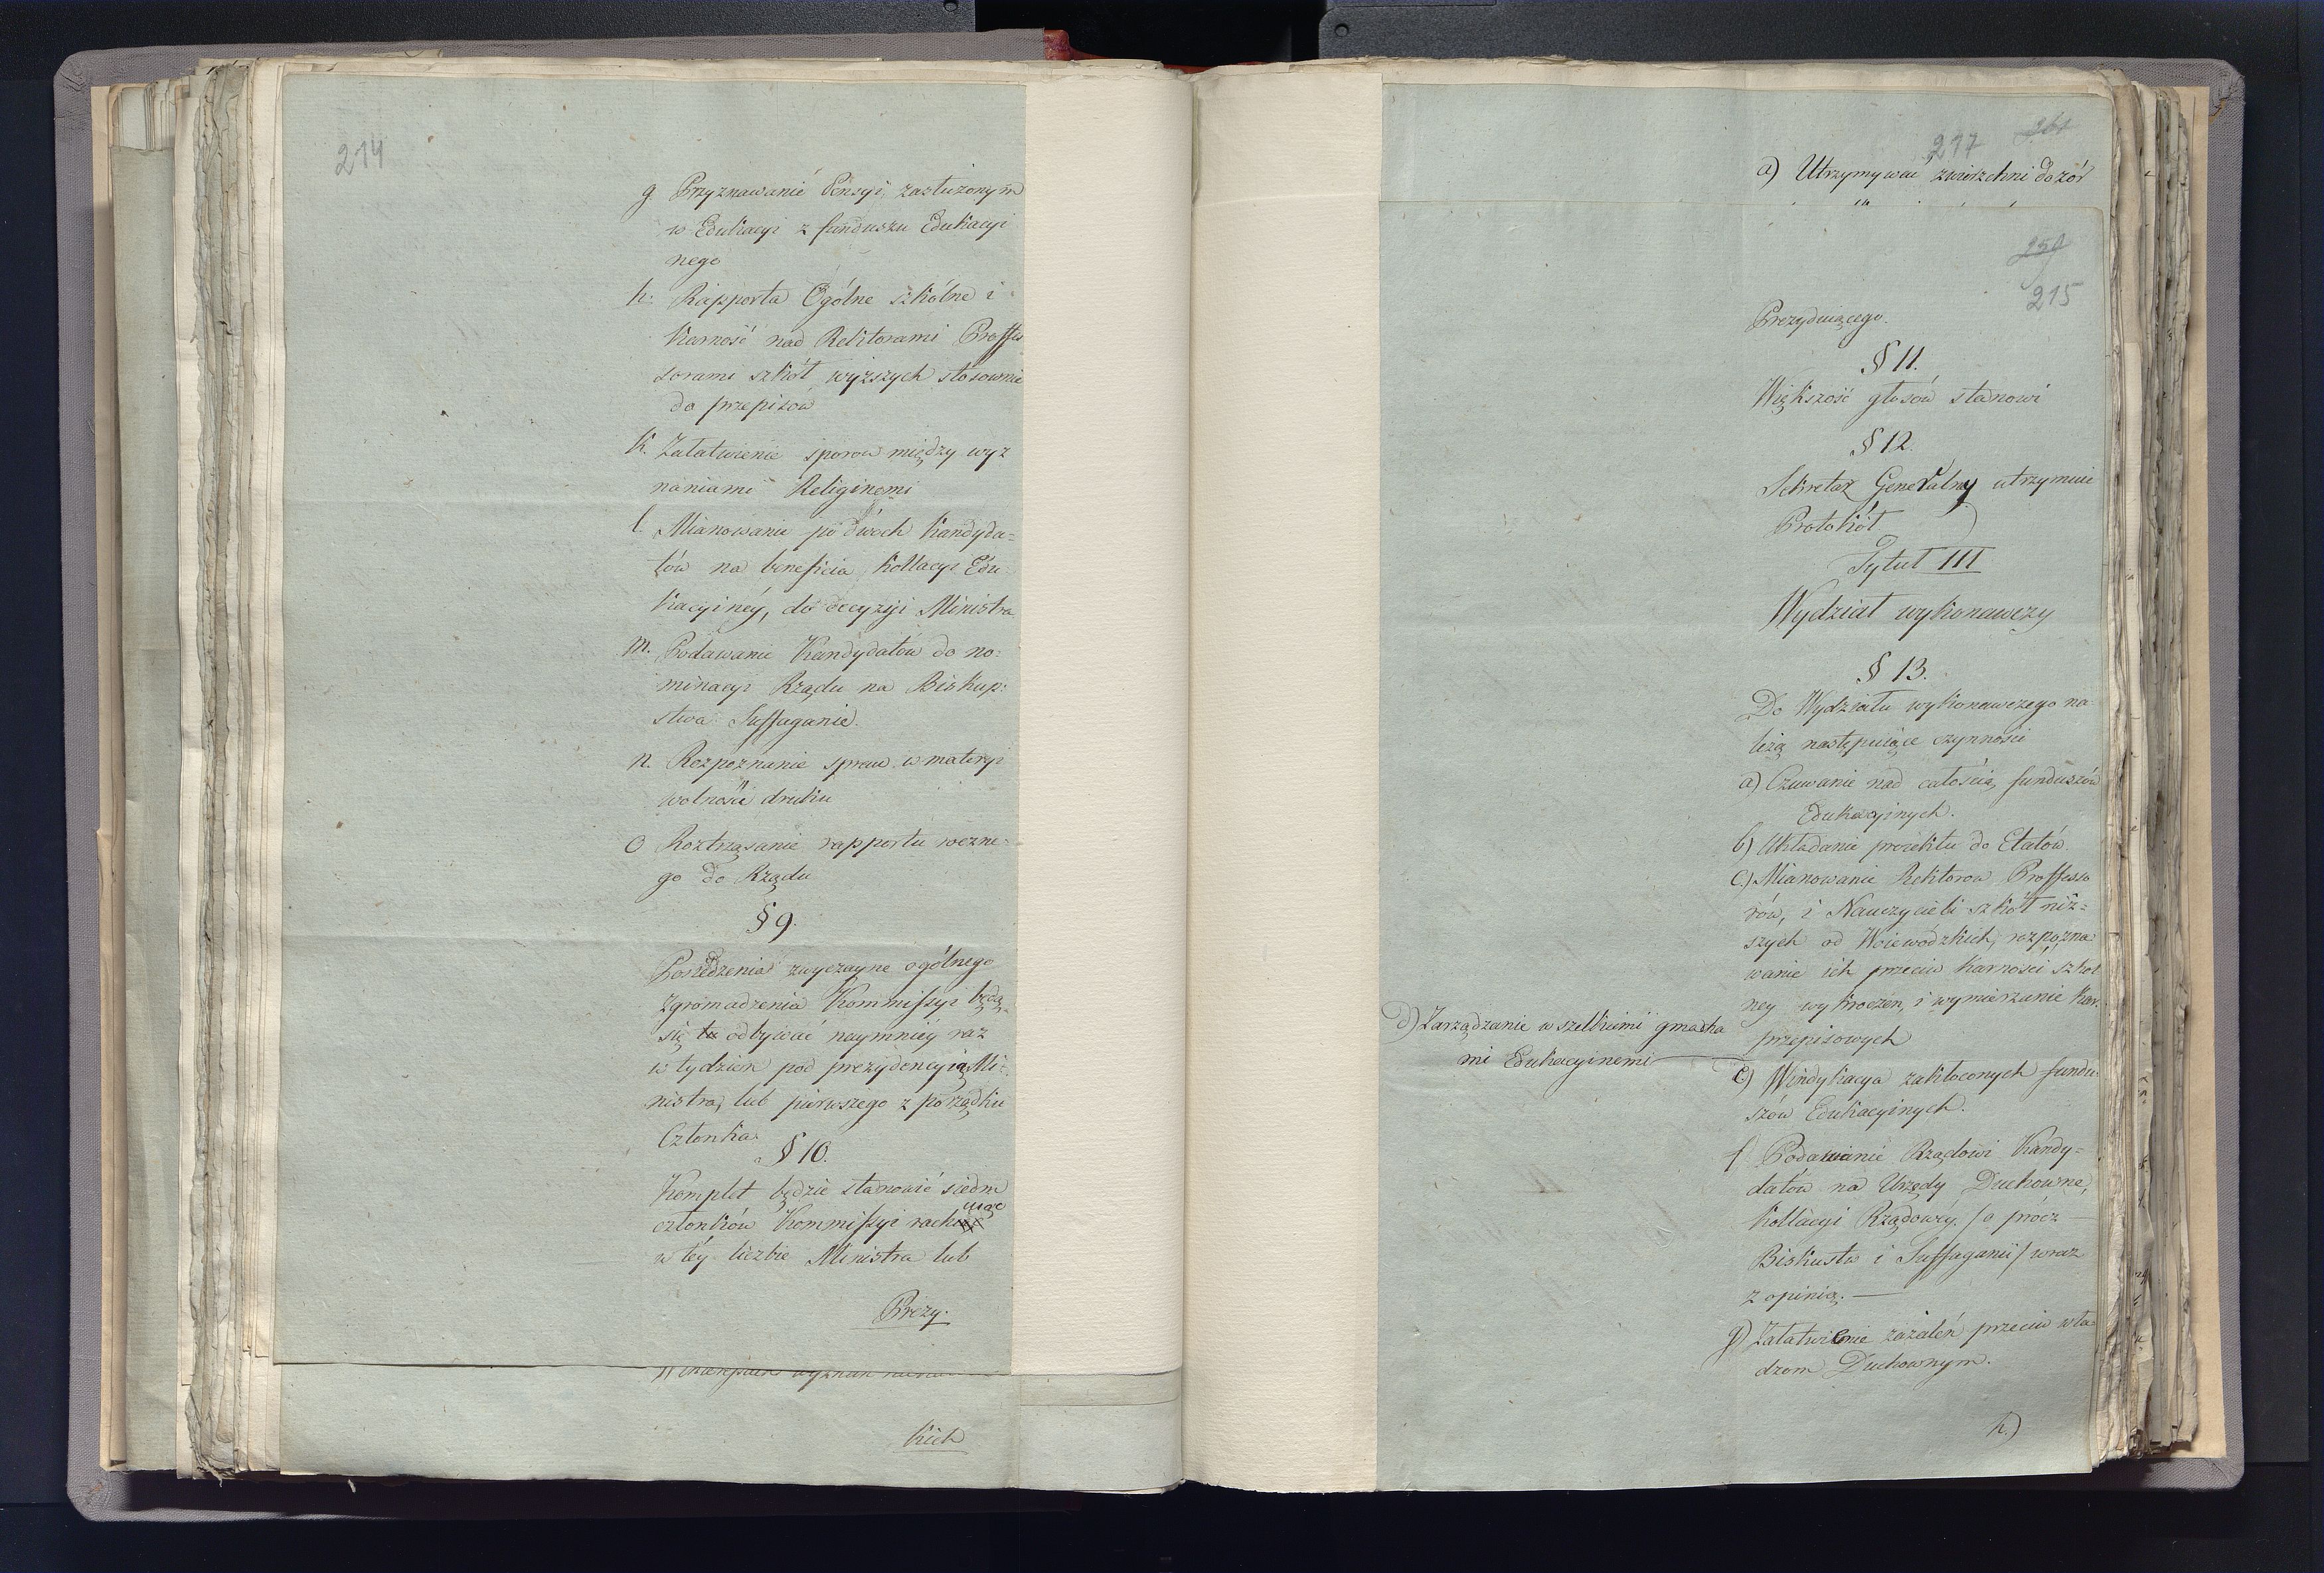 214
g Przyznawanie Pensyi, zasłużonym
w Edukacyi z funduszu Edukacyi
nego
h. Rapporta Ogólne szkólne i
Karność nad Rektorami Proffes
sorami szkół wyższych stosownie
do przepisow
k. Załatwienie sporow między wyz
naniami Religinemi
l. Mianowanie po dwóch kandyda=
tów na beneficia kollacyi Edu
kacyinéy, do decyzyi Ministra
m. Podawanie Kandydatów do no=
minacyi Rządu na Biskup=
stwa Suffaganie.
n. Rozpoznanie spraw w materyi
wolności druku
o Roztrząsanie rapportu roczne=
go do Rządu
§ 9.
Posiedzenia zwyczayne ogólnego
zgromadzenia Kommissyi będą
się odbywać naymniéy raz
w tydzien pod prezydencyią Mi=
nistra, lub pierwszego z porządku
Członka.
§ 10.
Komplet będzie stanowić siedm
członków Kommissyi rachuiąc
w téy liczbie Ministra lub
Prezy.
kich
217
a) Utrzymywać zwierzchni dozór
215
Prezyduiącego.
§ 11.
Większość głosów stanowi
§ 12.
Sekretaz Generalny utrzymuie
Protokół
Tytuł III
Wydział wykonawczy
§ 13.
Do Wydziału wykonawczego na
leżą następuiące czynności
a) Czuwanie nad całością funduszów
Edukacyinych.
b) Układanie proiektu do Etatów.
c.) Mianowanie Rektorow Proffesso
rów, i Nauczycieli szkół niż=
szych od Woiewódzkich, rozpozna
wanie ich przeciw karności szkol
ney wykroczeń, i wymierzanie kar.
przepisowych
d) Zarządzanie wszelkiemi gmacha
mi Edukacyinemi
e) Windykacya zakłoconych fundu=
szów Edukacyinych.
f Podawanie Rządowi Kandy=
datów na Urzędy Duchowne,
kollacyi Rządowéy. (o prócz
Biskustw i Suffaganii) wraz
z opinią. —
g) Załatwienie zażaleń przeciw wła
dzom Duchownym.
h.)